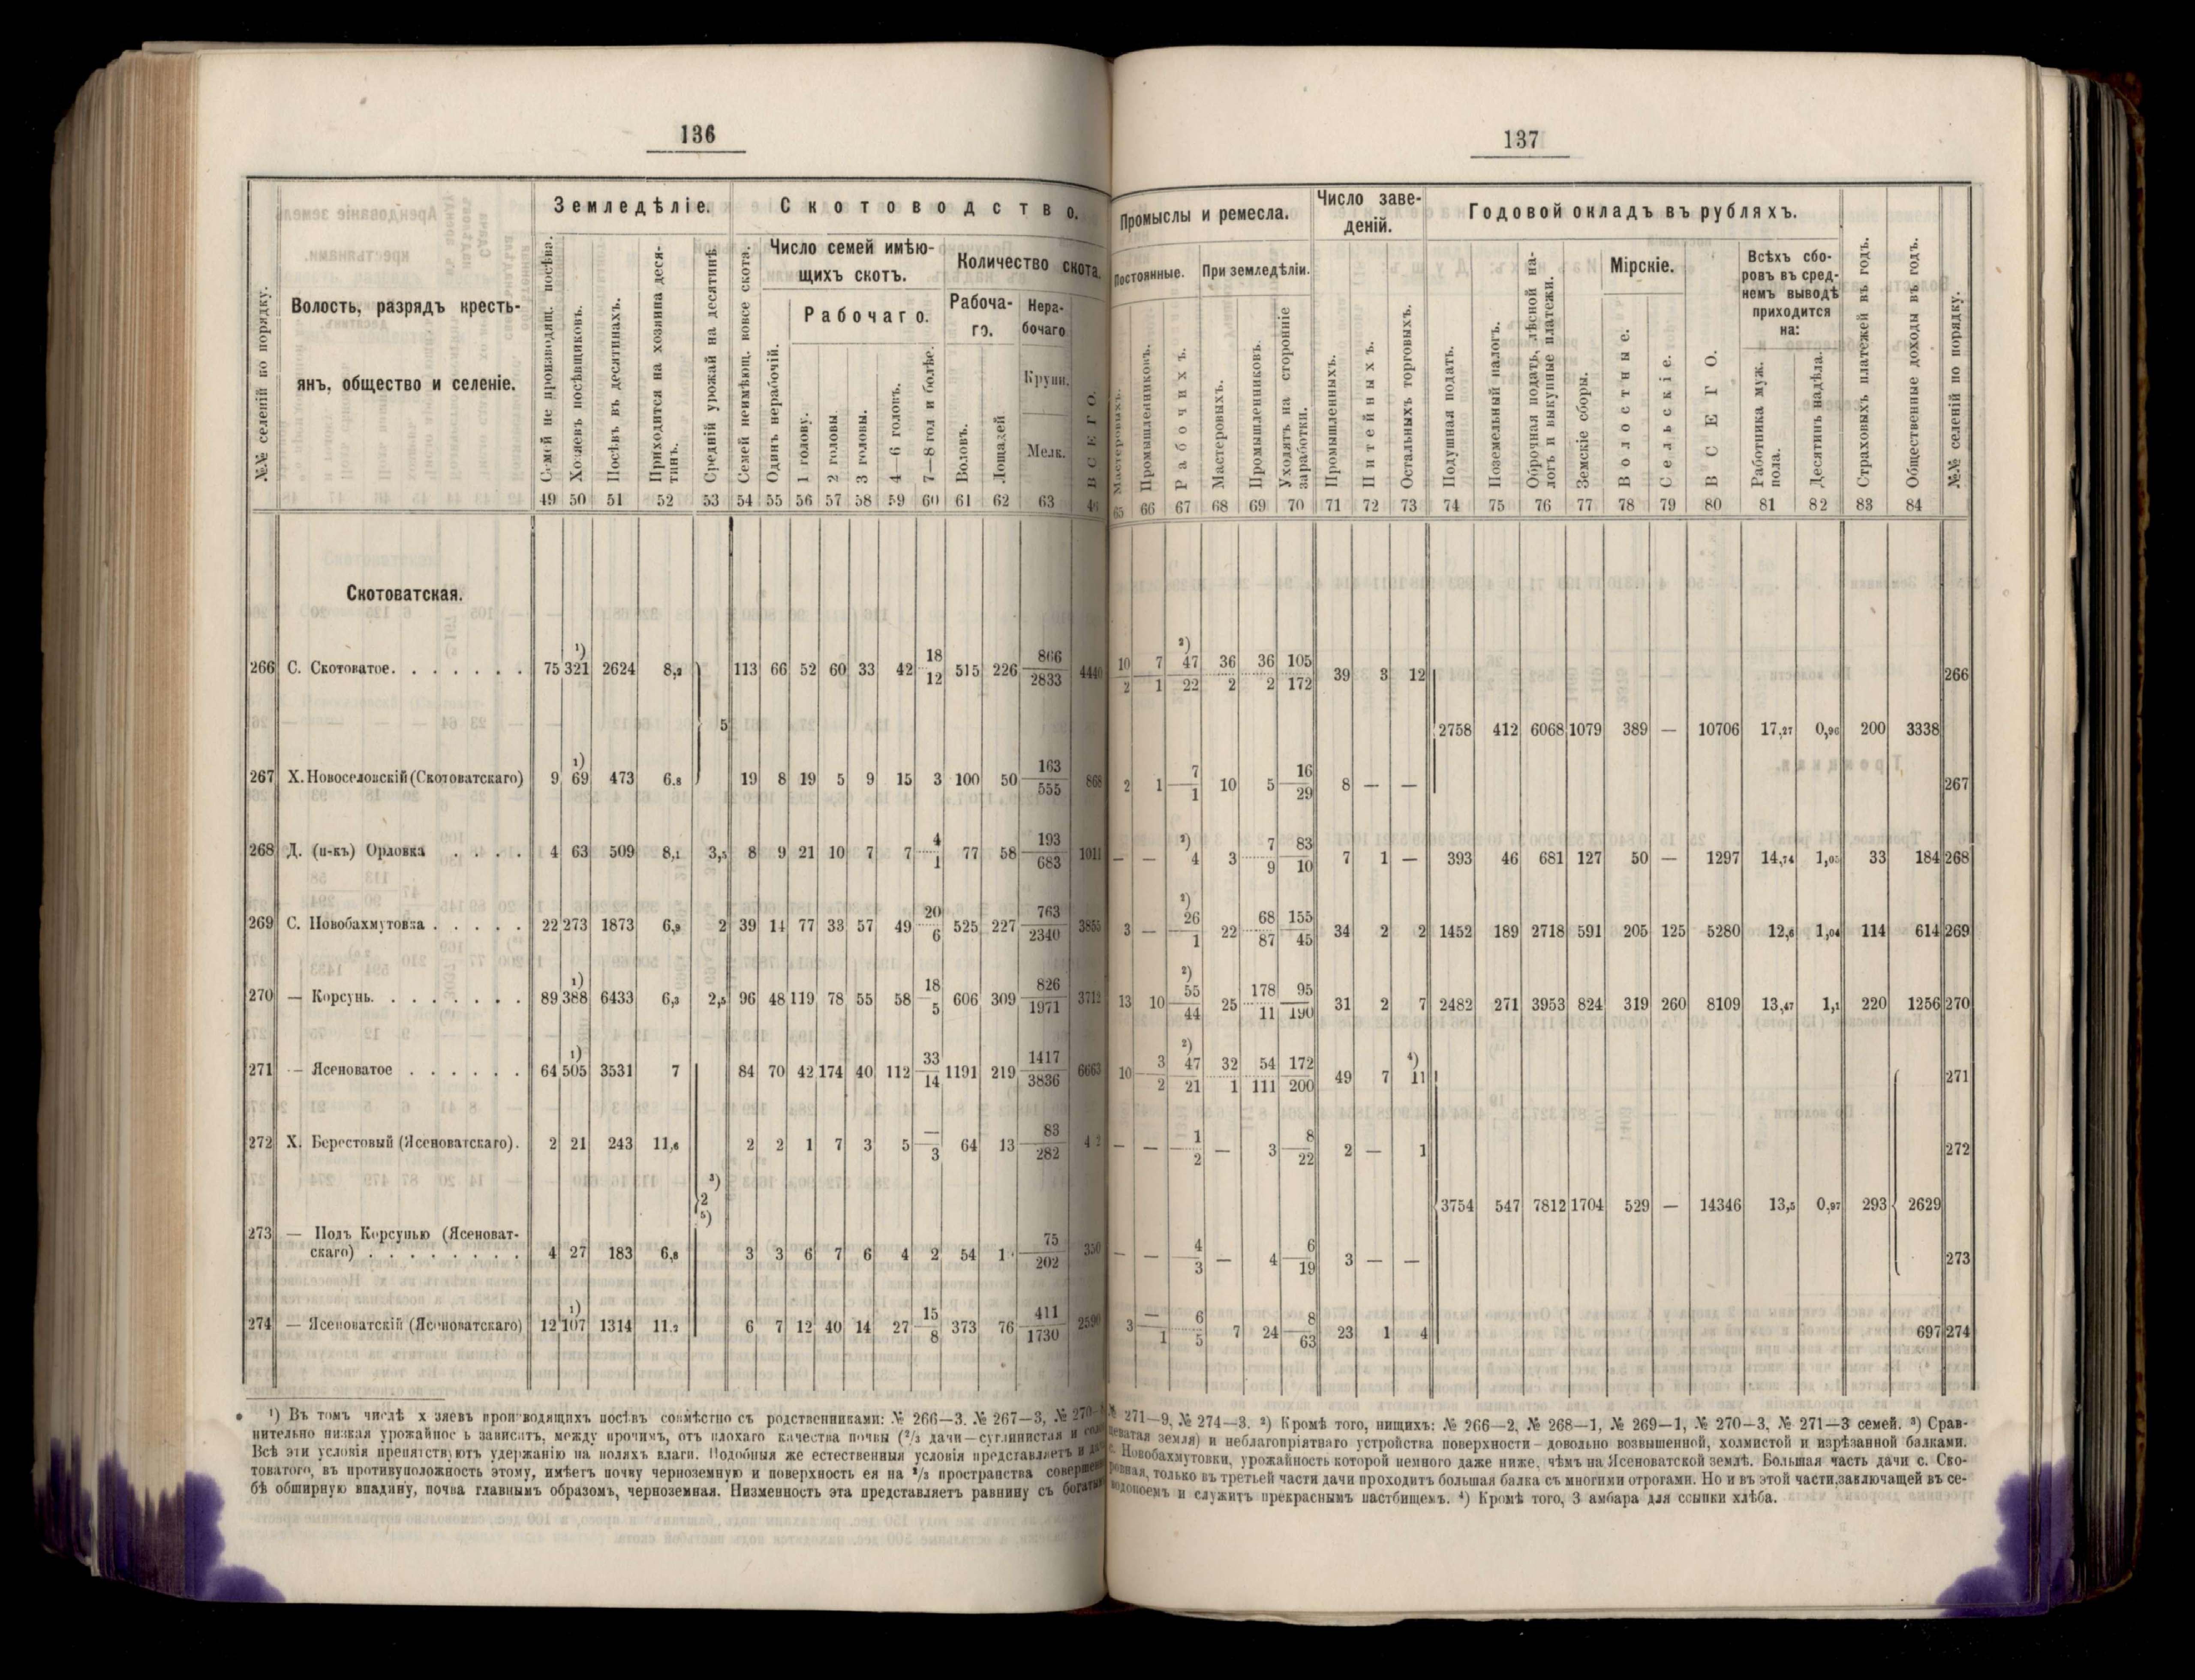 136
Земледѣліе.
Скотоводство.
№№ селеній по порядку.
Волость, разрядъ кресть-
янъ, общество и селеніе.
Семей не производящ. посѣва.
Хозяевъ посѣвщиковъ.
Посѣвъ въ десятинахъ.
Приходится на хозяина деся-
тинъ.
Средній урожай на десятинѣ
Семей неимѣющ. вовсе скота.
Число семей имѣю-
щихъ скотъ.
Количество скота.
Одинъ нерабочій.
Рабочаго.
1 голову.
2 головы
3 головы.
4—6 головъ.
7—8 гол и болѣе.
Рабоча-
го.
Воловъ.
Лошадей
Нера-
бочаго
Крупн.
Мелк.
ВСЕГО.
49 50 51 52 53 54 55 56 57 58 59 60 61 62 63
Скотоватская.
266 С. Скотоватое. 75 321 ¹) 2624 8,2 113 66 52 60 33 42 18/12 515 226 866/2833 4440
5
267 Х. Новоселовскій (Скотоватскаго) 9 69 ¹) 473 6.8 19 8 19 5 9 15 3 100 50 163/555 868
268 Д. (п-къ) Орловка 4 63 509 8,1 3,5 8 9 21 10 7 7 4/1 77 58 193/683 1011
269 С. Новобахмутовка 22 273 1873 6,9 2 39 14 77 33 57 49 20/6 525 227 763/2340 3855
270 — Корсунь. 89 388 ¹) 6433 6,3 2,5 96 48 119 78 55 58 18/5 606 309 826/1971 3712
271 — Ясеноватое 64 505 ¹) 3531 7 84 70 42 174 40 112 33/14 1191 219 1417/3836 6663
272 Х. Берестовый (Ясеноватскаго). 2 21 243 11,6 2 2 1 7 3 5 —/3 64 13 83/282
³)
2
⁵)
273 — Подъ Корсунью (Ясеноват-
скаго) 4 27 183 6,8 3 3 6 7 6 4 2 54 75/202 350
274 — Ясеноватскій (Ясеноватскаго) 12 107 ¹) 1314 11.2 6 7 12 40 14 27 15/8 373 76 411/1730 2590
¹) Въ томъ числѣ х зяевъ производящихъ посѣвъ совмѣстно съ родственниками: № 266—3. № 267—3, № 270—
нительно низкая урожайнос ь зависитъ, между прочимъ, отъ плохаго качества почвы (²/₃ дачи—суглинистая и
Всѣ эти условія препятствуютъ удержанію на поляхъ влаги. Подобныя же естественныя условія представляетъ и
товатого, въ противуположность этому, имѣетъ почву черноземную и поверхность ея на ²/₃ пространства
бѣ обширную впадину, почва главнымъ образомъ, черноземная. Низменность эта представляетъ равнину съ богатымъ
137
Промыслы и ремесла.
Число заве-
деній.
Годовой окладъ въ рубляхъ.
Постоянные.
При земледѣліи.
Мастеровыхъ.
Промышленниковъ.
Рабочихъ.
Мастеровыхъ.
Промышленниковъ.
Уходятъ на сторонніе
заработки.
Промышленныхъ.
Питейныхъ.
Остальныхъ торговыхъ.
Подушная подать.
Поземельный налогъ.
Оброчная подать, лѣсной на-
логъ и выкупные платежи.
Земскіе сборы.
Мірскіе.
Волостные.
Сельскіе.
ВСЕГО.
Всѣхъ сбо-
ровъ въ сред-
немъ выводѣ
приходится
на:
Работника муж.
пола.
Десятинъ надѣла.
Страховыхъ платежей въ годъ.
Общественные доходы въ годъ.
№№ селеній по порядку.
65 66 67 68 69 70 71 72 73 74 75 76 77 78 79 80 81 82 83 84
10/2 7/1 ²) 47/22 36/2 36/2 105/172 39 3 12 266
2758 412 6068 1079 389 — 10706 17,27 0,96 200 3338
2 1 7/1 10 5 16/29 8 — — 267
— — ²) 4 3 7/9 83/10 7 1 — 393 46 681 127 50 — 1297 14,74 1,05 33 184 268
3 — ²) 26/1 22 68/87 155/45 34 2 2 1452 189 2718 591 205 125 5280 12,6 1,04 114 614 269
13 10 ²) 55/44 25 178/11 95/190 31 2 7 2482 271 3953 824 319 260 8109 13,47 1,1 220 1256 270
10 3/2 ²) 47/21 32/1 54/111 172/200 49 7 ⁴) 11 271
— — 1/2 — 3 8/22 2 — 1 272
3754 547 7812 1704 529 — 14346 13,5 0,97 293 2629
— — 4/3 — 4 6/19 3 — — 273
3 —/1 6/5 7 24 8/63 23 1 4 697 274
№ 271—9, № 274—3. ²) Кромѣ того, нищихъ: № 266—2, № 268—1, № 269—1, № 270—3, № 271—3 семей. ³) Срав-
цеватая земля) и неблагопріятнаго устройства поверхности—довольно возвышенной, холмистой и изрѣзанной балками.
с. Новобахмутовки, урожайность которой немного даже ниже, чѣмъ на Ясеноватской землѣ. Большая часть дачи с. Ско-
ровная, только въ третьей части дачи проходитъ большая балка съ многими отрогами. Но и въ этой части,заключащей въ се-
водопоемъ и служитъ прекраснымъ пастбищемъ. ⁴) Кромѣ того, 3 амбара для ссыпки хлѣба.